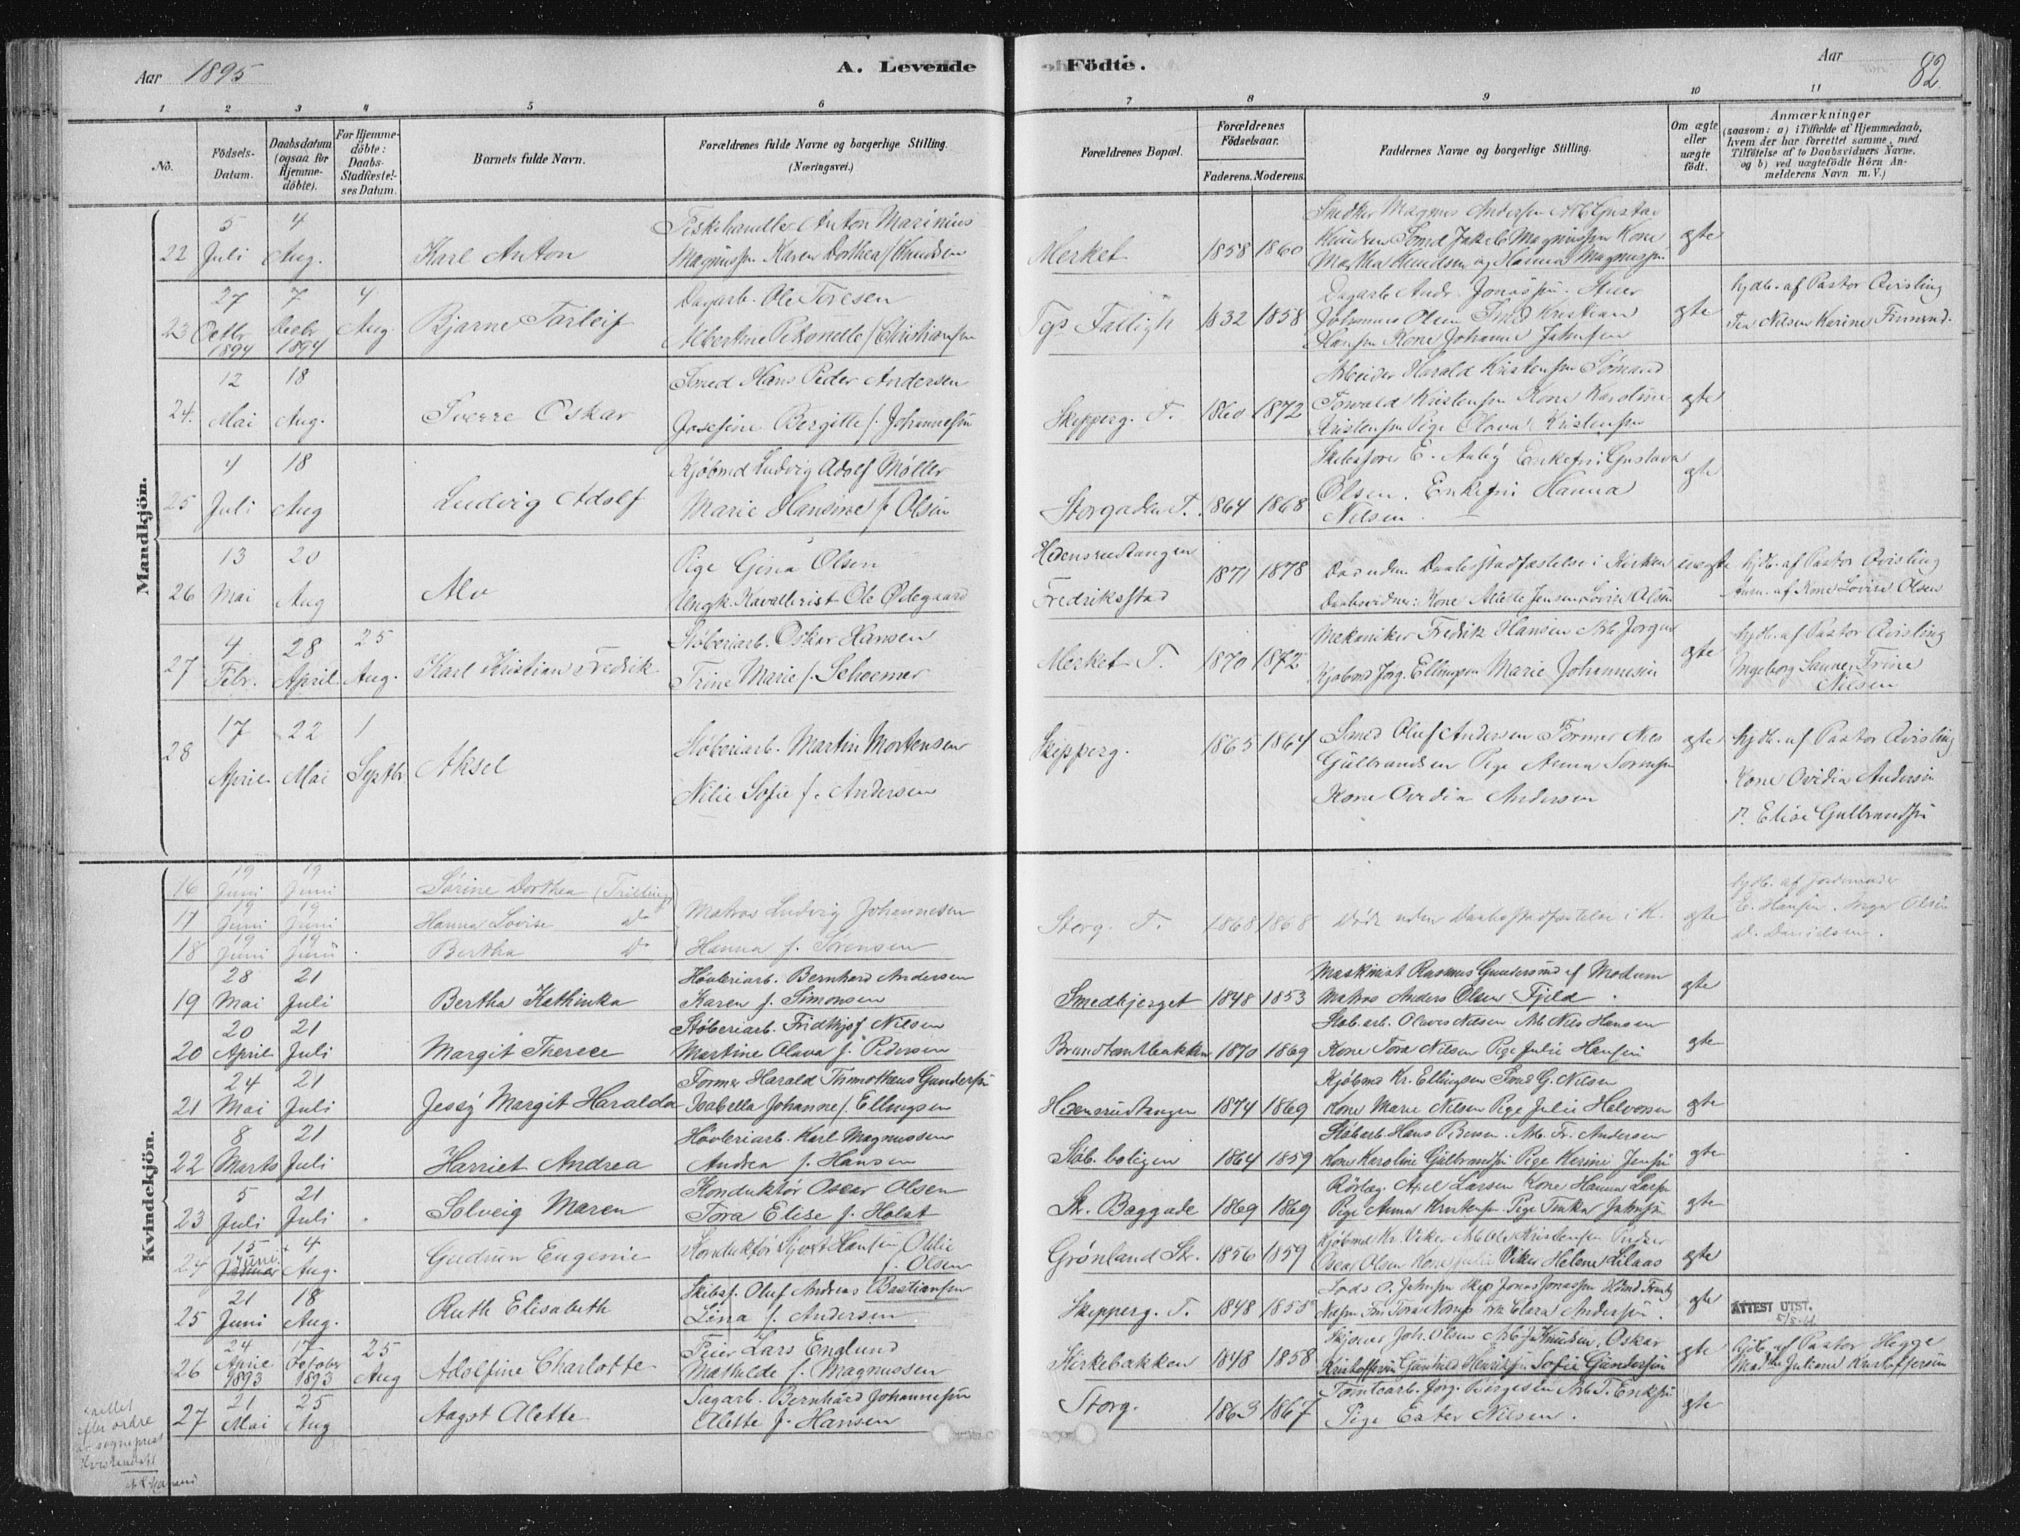 Aar 1895
A. Levende Födte.
Aar
82
1 2 3 4 5 6 7 8 9 10 11
No.
Födsels-Datum.
Daabsdatum (ogsaa for Hjemme-döbte).
For Hjemme-döbte: Daabs-Stadfæstel-ses Datum.
Barnets fulde Navn.
Forældrenes fulde Navne og borgerlige Stilling. (Næringsvei.)
Forældrenes Bopæl.
Forældrenes Födselsaar.
Faderens. Moderens.
Faddernes Navne og borgerlige Stilling.
Om ægte eller uægte födt.
Anmærkninger
(saasom: a) i Tilfælde af Hjemmedaab, hvem der har forrettet samme, med Tilföielse af to Daabsvidners Navne. og b) ved uægtefödte Börn An-melderens Navn m. V.)
Mandkjön.
22 5 Juli 4 Aug. Karl Anton
Fiskehandler Anton Marinius
Magnussen Karen Dorthea f. Knudsen
Merket 1858 1860
Snedker Magnus Andersen Arb Gustav
Knudsen Smed Jakob Magnussen Kone
Martha Knudsen og Hanna Magnussen
ægte
23 27 Octbr 1894 7 Decbr 1894 4 Aug. Bjarne Torleif
Dagarb. Ole Toresen
Albertine Petronelle f. Christiansen
1832 1858
Dagarb Andr. Jonassen
Johannes Olsen Smed Kristian
Hansen Kone Johanne Jahnsen
ægte
hjdb. af Pastor Qvisling
24. 12 Mai 18 Aug. Sverre Oskar
Smed Hans Peder Andersen
Josefine Bergitte f. Johannessen
Skipperg. T. 1860 1872
Arbeider Harald Kristensen Sömand
Torvald Kristensen Kone Karoline
Kristensen Pige Olava Kristensen
ægte
25 4 Juli 18 Aug Ludvig Adolf
Kjöbmd Ludvig Adolf Möller
Marie Hansine f. Olsen
Storgaden T. 1864 1868
Skibsförer E. Aaby Enkefru Gustava
Olsen. Enkefru Hanna
Nilsen.
ægte
26 13 Mai 20 Aug Alv
Pige Gina Olsen
Ungk. Kavallerist Ole Ödegaard
Hexensrudtangen
Fredriksstad
1871 1878
Död uden Daabsstadfæstelse i Kirken
Daabsvidner: Kone Alette Jensen, Lovise Olsen
uægte
hjdb. af Pastor Qvisling
Anm. af Kone Lovise Olsen
27 4 Febr. 28 April 25 Aug. Karl Kristian Fredrik
Stöberiarb. Oskar Hansen
Trine Marie f. Schoemer
Merket T. 1870 1872
Mekaniker Fredrik Hansen Arb Jörgen
Kjöbmd Jörg. Ellingsen Marie Johannesen
ægte
hjdb. af Pastor Qvisling
Ingeborg Sanner, Trine
Nilsen
28 17 April 22 Mai 1 Septbr. Aksel
Stöberiarb. Martin Mortensen
Nilie Sofie f. Andersen
Skipperg. 1865 1864
Smed Oluf Andersen Former Nils
Gulbrandsen Pige Anna Sörensen
Kone Ovidia Andersen
ægte
hjdb. af Pastor Qvisling
Kone Ovidia Andersen
P. Elise Gulbrandsen
Kvindekjön.
16 19 Juni 19 Juni Sörine Dorthea (Trilling)
17 19 Juni 19 Juni Hanna Lovise do
18 19 Juni 19 Juni Bertha do
Matros Ludvig Johannesen
Hanna f. Sörensen
Storg. T. 1868 1868
Döde uden Daabsstadfæstelse i K.
ægte
hjdb. af Jordemoder
E. Hansen. Inger Olsen
D. Davidsen.
19 28 Mai 21 Juli Bertha Kathinka
Hövleriarb. Bernhard Andersen
Karen f. Simonsen
Smedbjerget 1848 1853
Maskinist Rasmus Gundersund af Modum
Matros Anders Olsen Fjeld.
ægte
20 20 April 21 Juli Margit Therese
Stöberiarb. Fridtjof Nilsen
Martine Olava f. Pedersen
Brandtomtbakken 1870 1869
Stöb.arb. Olaves Nilsen Arb Nils Hansen
Kone Tora Nilsen Pige Julie Hansen
ægte
21 24 Mai 21 Juli Jessy Margit Haralda
Former Harald Thimotheus Gundersen
Isabella Johanne f. Ellingsen
Hexensrudtangen 1874 1869
Kjöbmd Kr. Ellingsen Smd G. Nilsen
Kone Marie Nilsen Pige Julie Halvorsen
ægte
22 8 Marts 21 Juli Harriet Andrea
Hövleriarb. Karl Magnussen
Andrea f. Hansen
Stöb. boligen 1864 1859
Stöbarb. Hans Persen. Arb. Fr. Andersen
Kone Karoline Gulbrandsen Pige Karine Jensen
ægte
23 5 Juli 21 Juli Solveig Maren
Konduktör Oscar Olsen
Tora Elise f. Holst
St. Baggade 1869 1869
Rörlæg. Axel Larsen Kone Hanna Larsen
Pige Anna Kristensen Pige Tinka Jahnsen
ægte
24 15 Juni 4 Aug. Gudrun Eugenie
Konduktör Syvert Hansen Othilie
f. Olsen
Grönland St. 1856 1859
Kjöbmd Kr. Viker Arb Ole Kristensen
Oscar Olsen Kone Julie Viker Helene Lilaas
ægte
25 21 Juni 18 Aug. Ruth Elisabeth
Skibsf. Oluf Andreas Bastiansen
Lina f. Andersen
Skipperg. T. 1848 1855
Lods O. Jahnsen Skip Jonas Jonassen
ægte
ATTEST UTST.
26 24 April 1893 17 October 1893 25 Aug Adolfine Charlotte
Feier Lars Englund
Mathilde f. Magnussen
Kirkebakken 1848 1858
Joh. Olsen Arb J Knudsen, Oskar
Kristoffersen Gunhild Henriksen Sofie Gundersen
ægte
hjdb. af Pastor Hegge
Juliane Kristoffersen
27 21 Mai 25 Aug Aagot Alette
Sagarb. Bernhard Johannesen
Alette f. Hansen
Storg. 1863 1867
Tomtearb. Jörg. Börgesen Arb T. Eriksen
Pige Ester Nilsen.
ægte
efter ordre
av sogneprest